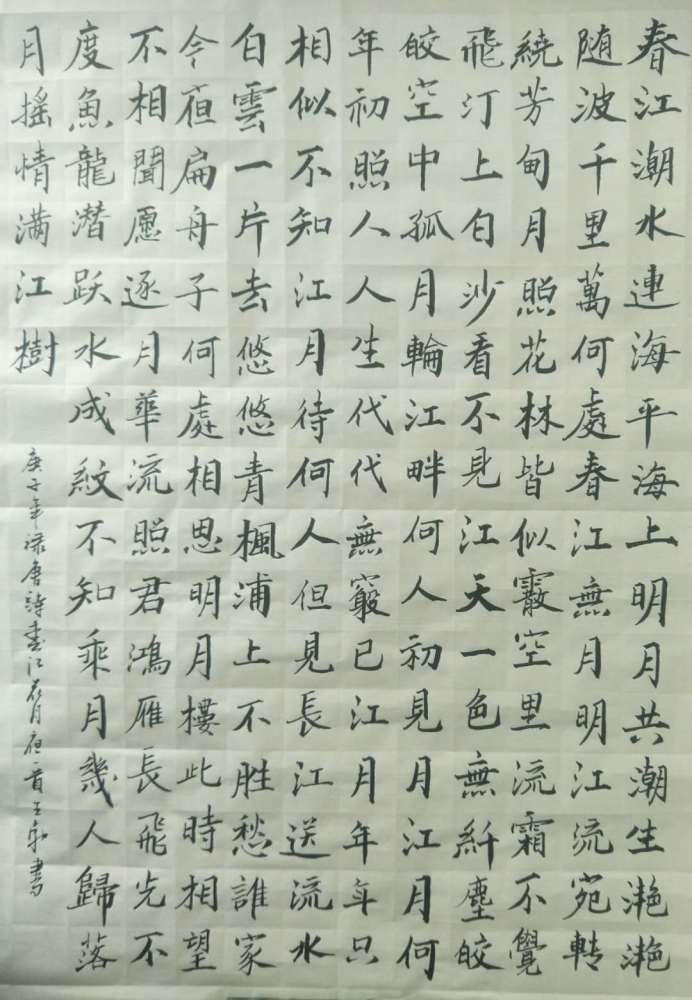 春江潮水連海平海上明月共潮生滟滟
随波千里萬何處春江無月明江流宛轉
繞芳甸月照花林皆似霰空里流霜不覺
飛汀上白沙看不見江天一色無纤塵皎
皎空中孤月輪江畔何人初見月江月何
年初照人人生代代無窮已江月年年只
相似不知江月待何人但見長江送流水
白雲一片去悠悠青楓浦上不胜愁誰家
今夜扁舟子何處相思明月樓此時相望
不相聞愿逐月華流照君鴻雁長飛光不
度魚龍潜跃水成紋不知乘月幾人歸落
月摇情满江樹
庚子年录唐詩春江花月夜一首王書